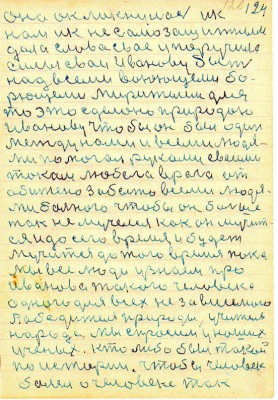 124
она окликнулась их к
нам их не самозащитным
дала слова свае и поручила
силы сваи Иванову быт
над всеми воюющеми бо-
рющеми мирягими для
то это сделоно природою
Иванову чтобы он был один
между нами и всеми людя-
ми помогал руками своими
токам любого врага от
обижено забыто всеми людя-
ми болного чтобы он болше
так не мучелся как он мучит-
ся и до сего время и будет
мучится до того время пока
мы все люди узнаем про
Иванова такого человека
одного для всех независемого
Победителя природы, учителя
народа. Мы спросем у наших
ученых. Кто либо был такой
по истории. чтобы человек
болел о человеке так